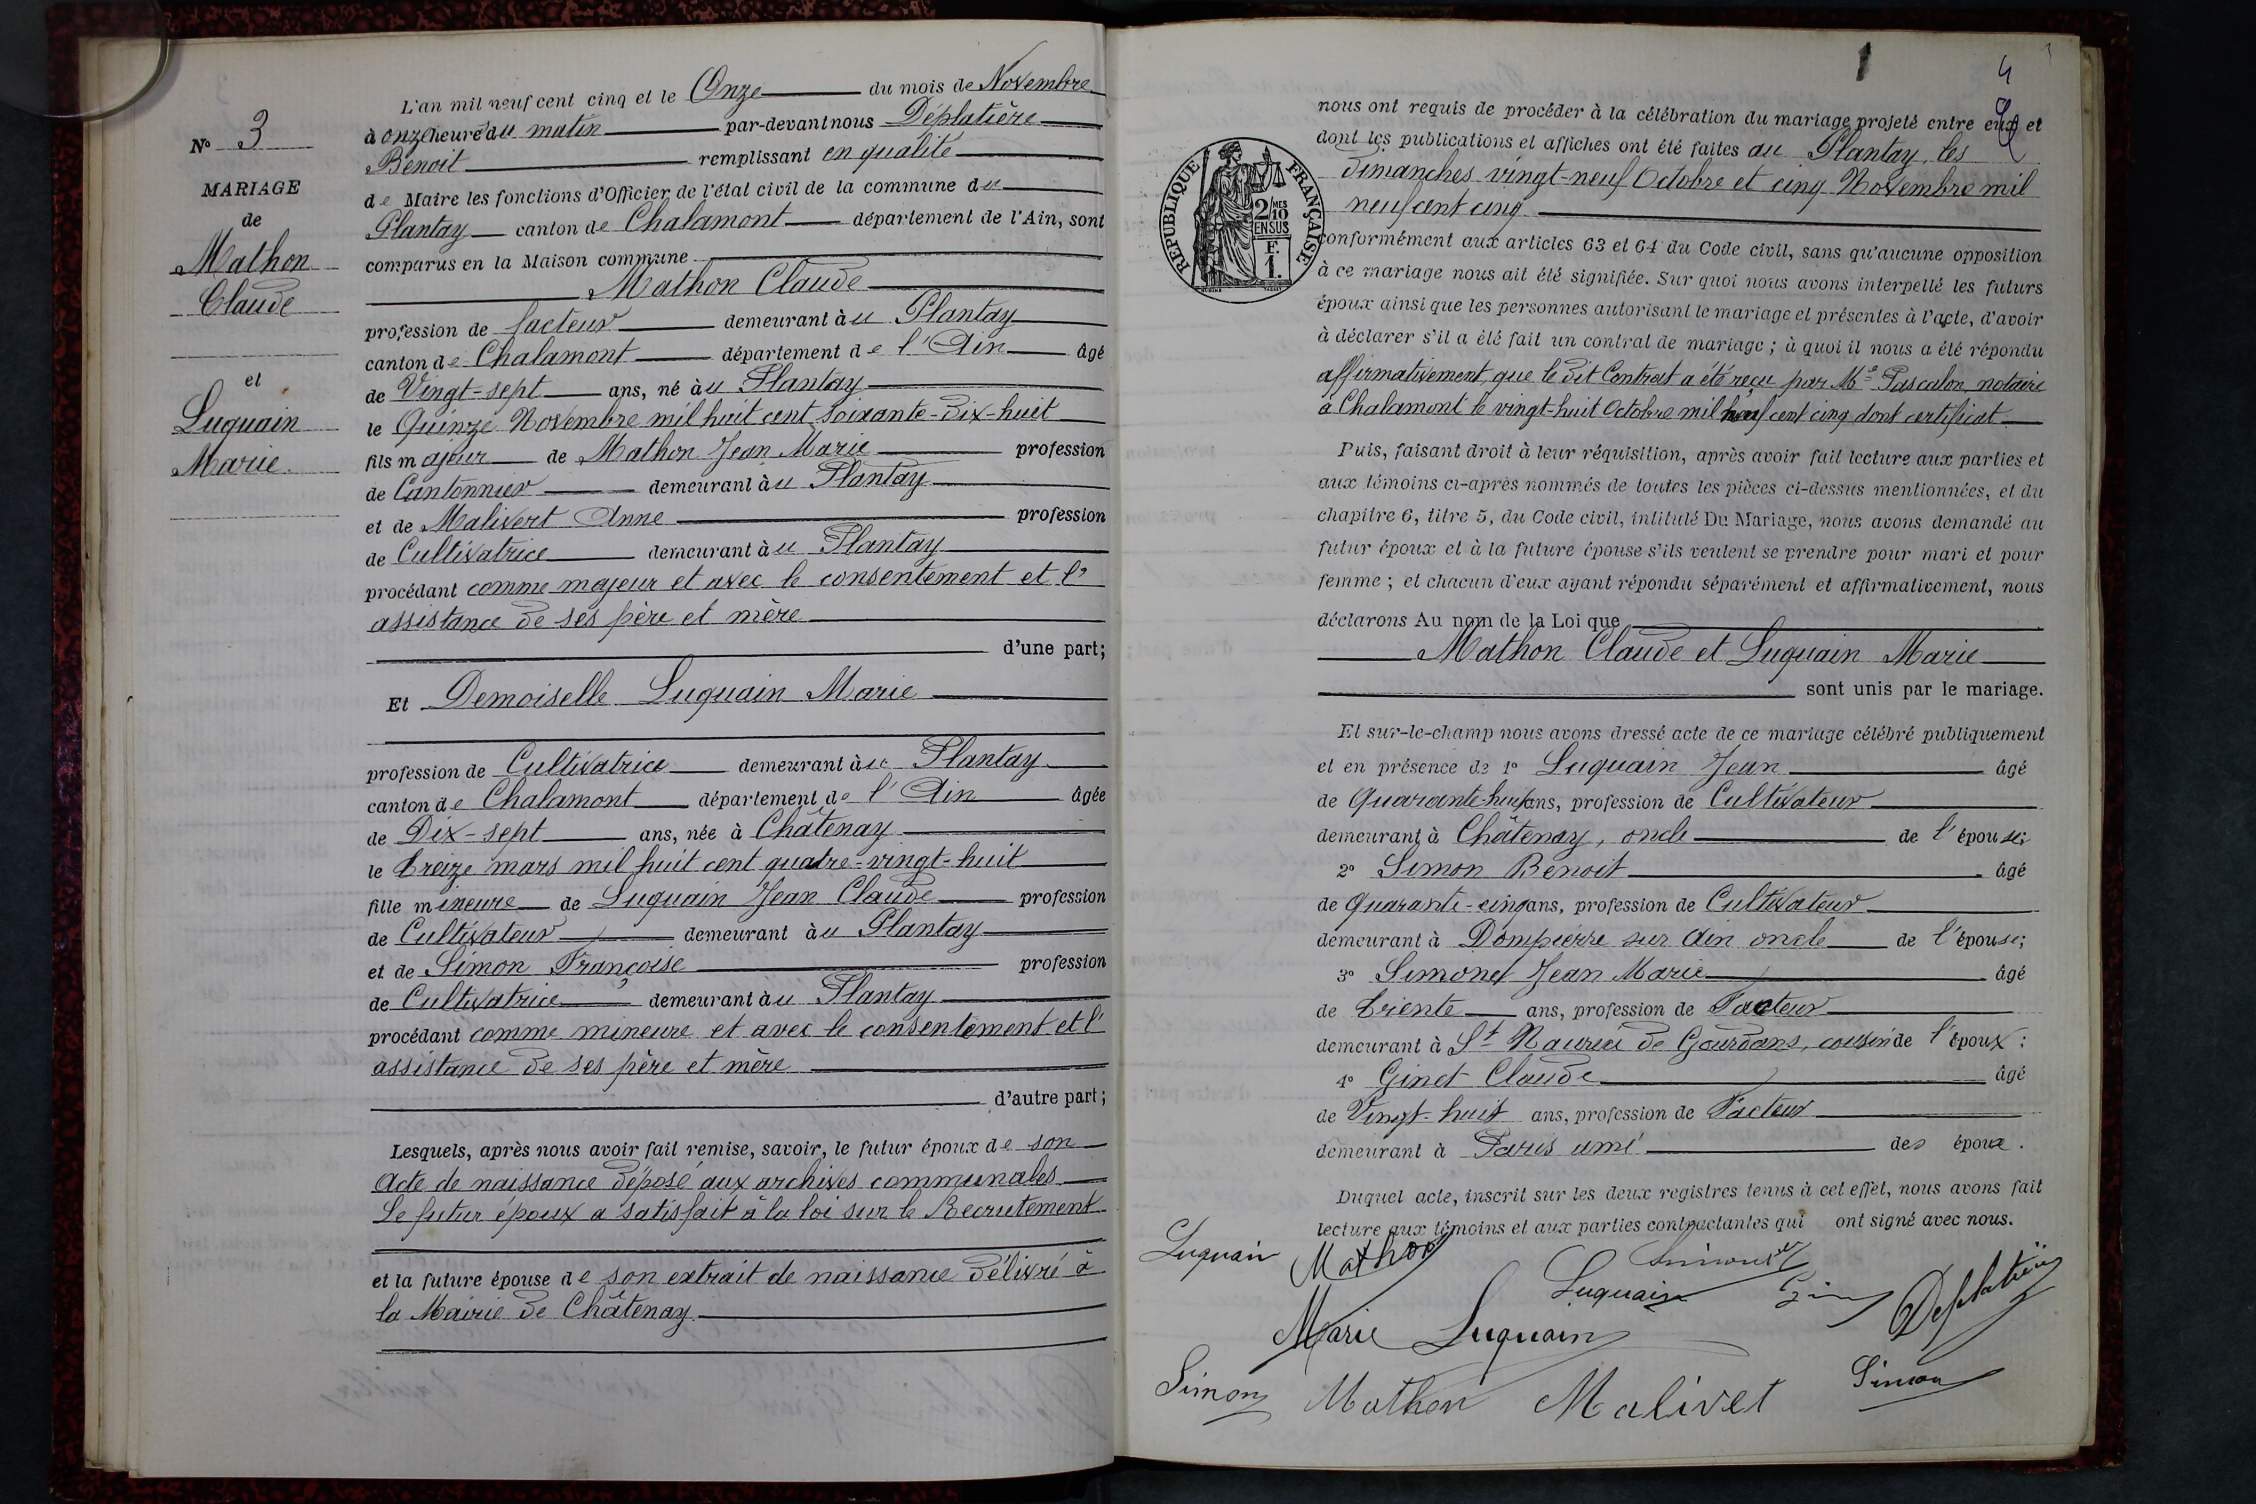 N° 3
MARIAGE
de
Mathon
Claude
et
Luquain
Marie.
L'an mil neuf cent cinq et le Onze du mois de Novembre
à onze heure du matin par-devant nous Déplatière
Benoit remplissant en qualité
de Maire les fonctions d'Officier de l'état civil de la commune du
Plantay canton de Chalamont département de l'Ain, sont
comparus en la Maison commune
Mathon Claude
profession de facteur demeurant au Plantay
canton de Chalamont département de l'Ain âgé
de Vingt-sept ans, né au Plantay
le Quinze Novembre mil huit cent soixante-dix-huit
fils majeur de Mathon Jean Marie profession
de Cantonnier demeurant au Plantay
et de Malivert Anne profession
de Cultivatrice demeurant au Plantay
procédant comme majeur et avec le consentement et l'
assistance de ses père et mère
d'une part;
Et Demoiselle Luquain Marie
profession de Cultivatrice demeurant au Plantay
canton de Chalamont département de l'Ain âgée
de Dix-sept ans, née à Châtenay
le treize mars mil huit cent quatre-vingt-huit
fille mineure de Luquain Jean Claude profession
de Cultivateur demeurant au Plantay
et de Simon Françoise profession
de Cultivatrice demeurant au Plantay
procédant comme mineure et avec le consentement et l'
assistance de ses père et mère
d'autre part;
Lesquels, après nous avoir fait remise, savoir, le futur époux de son
acte de naissance déposé aux archives communales
Le futur époux a satisfait à la loi sur le Recrutement
et la future épouse de son extrait de naissance délivré à
la Mairie de Châtenay
1
4
RÉPUBLIQUE FRANÇAISE
2/10 MES
EN SUS
F.
1.
nous ont requis de procéder à la célébration du mariage projeté entre eux et
dont les publications et affiches ont été faites au Plantay, les
Dimanches vingt-neuf Octobre et cinq Novembre mil
neuf cent cinq
conformément aux articles 63 et 64 du Code civil, sans qu'aucune opposition
à ce mariage nous ait été signifiée. Sur quoi nous avons interpellé les futurs
époux ainsi que les personnes autorisant le mariage et présentes à l'acte, d'avoir
à déclarer s'il a été fait un contrat de mariage; à quoi il nous a été répondu
affirmativement, que le dit Contrat a été reçu par Me Pascalon notaire
à Chalamont le vingt-huit Octobre mil neuf cent cinq dont certificat
Puis, faisant droit à leur réquisition, après avoir fait lecture aux parties et
aux témoins ci-après nommés de toutes les pièces ci-dessus mentionnées, et du
chapitre 6, titre 5, du Code civil, intitulé Du Mariage, nous avons demandé au
futur époux et à la future épouse s'ils veulent se prendre pour mari et pour
femme; et chacun d'eux ayant répondu séparément et affirmativement, nous
déclarons Au nom de la Loi que
Mathon Claude et Luquain Marie
sont unis par le mariage.
Et sur-le-champ nous avons dressé acte de ce mariage célébré publiquement
et en présence de 1° Luquain Jean âgé
de Quarante-huit ans, profession de Cultivateur
demeurant à Châtenay, oncle de l'épouse;
2° Simon Benoit âgé
de Quarante-cinq ans, profession de Cultivateur
demeurant à Dompierre sur Ain oncle de l'épouse;
3° Simonet Jean Marie âgé
de trente ans, profession de Facteur
demeurant à St Maurice de Gourdans, cousin de l'époux;
4° Ginet Claude âgé
de Vingt-huit ans, profession de Facteur
demeurant à Paris ami des époux.
Duquel acte, inscrit sur les deux registres tenus à cet effet, nous avons fait
lecture aux témoins et aux parties contractantes qui ont signé avec nous.
Luquain Mathon Luquain Simonet Déplatière
Marie Luquain
Simon Mathon Malivet Simon